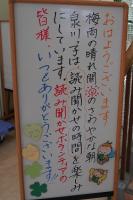 おはようございます。
梅雨の晴れ間のさわやかな朝
泉川っ子は、読み聞かせの時間を楽しみ
にしています。読み聞かせボランティアの
皆様、いつもありがとうございます！